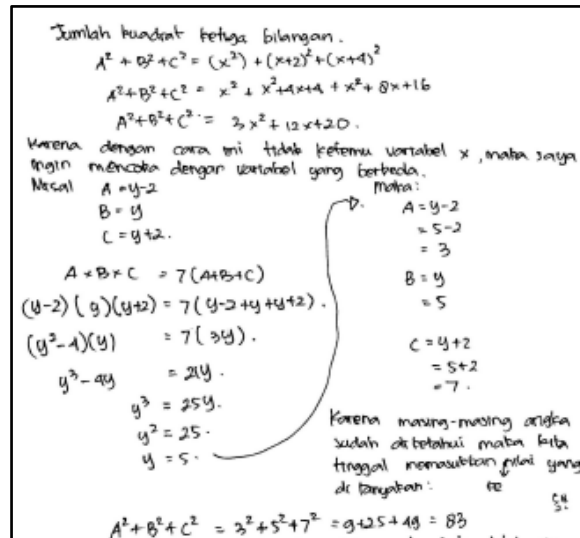 Jumlah kuadrat ketiga bilangan.
A² + B² + C² = (x²) + (x+2)² + (x+4)²
A²+B²+C² = x² + x²+4x+4 + x²+8x+16
A²+B²+C² = 3x²+12x+20.
Karena dengan cara ini tidak ketemu variabel x, maka saya
ingin mencoba dengan variabel yang berbeda.
Misal A = y-2
B = y
C = y+2.
A × B × C = 7(A+B+C)
(y-2)(y)(y+2) = 7(y-2+y+y+2).
(y²-4)(y) = 7(3y).
y³-4y = 21y.
y³ = 25y.
y² = 25.
y = 5.
maka:
A = y-2
= 5-2
= 3
B = y
= 5
C = y+2
= 5+2
= 7.
Karena masing-masing angka
sudah diketahui maka kita
tinggal memasukkan nilai yang
ditanyakan:
A²+B²+C² = 3²+5²+7² = 9+25+49 = 83